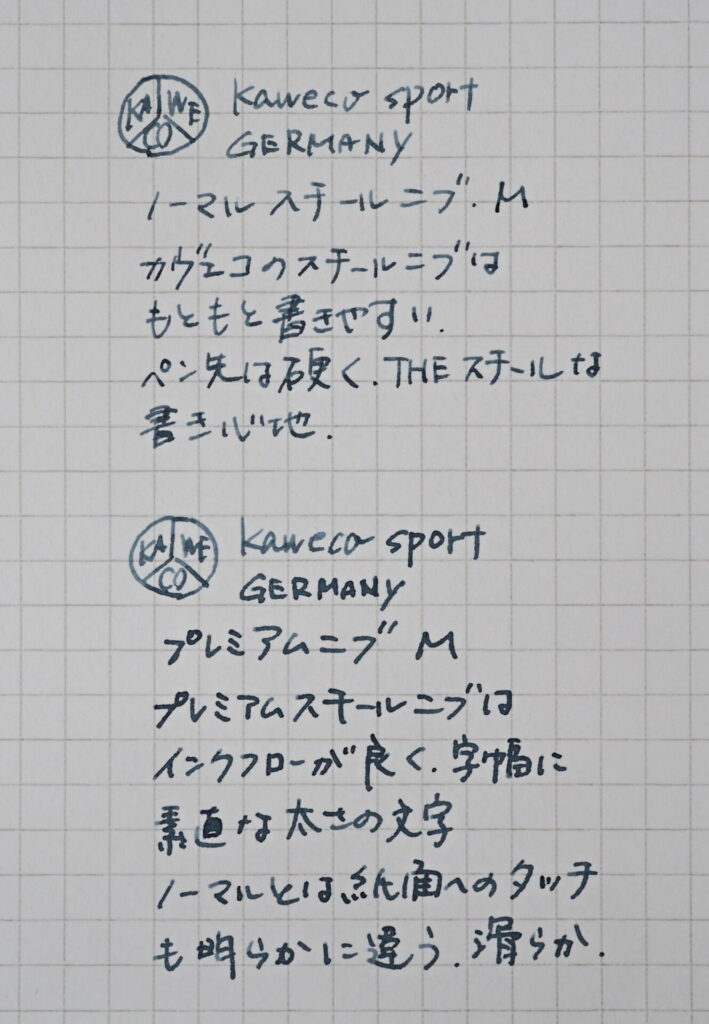 KA WE CO
Kaweco sport
GERMANY
ノーマル スチール ニブ. M
カヴェコのスチールニブは
もともと書きやすい.
ペン先は硬く. THE スチールな
書き心地.
KA WE CO
Kaweco sport
GERMANY
プレミアムニブ M
プレミアムスチールニブは
インクフローが良く. 字幅に
素直な太さの文字
ノーマルとは紙面へのタッチ
も明らかに違う. 滑らか.